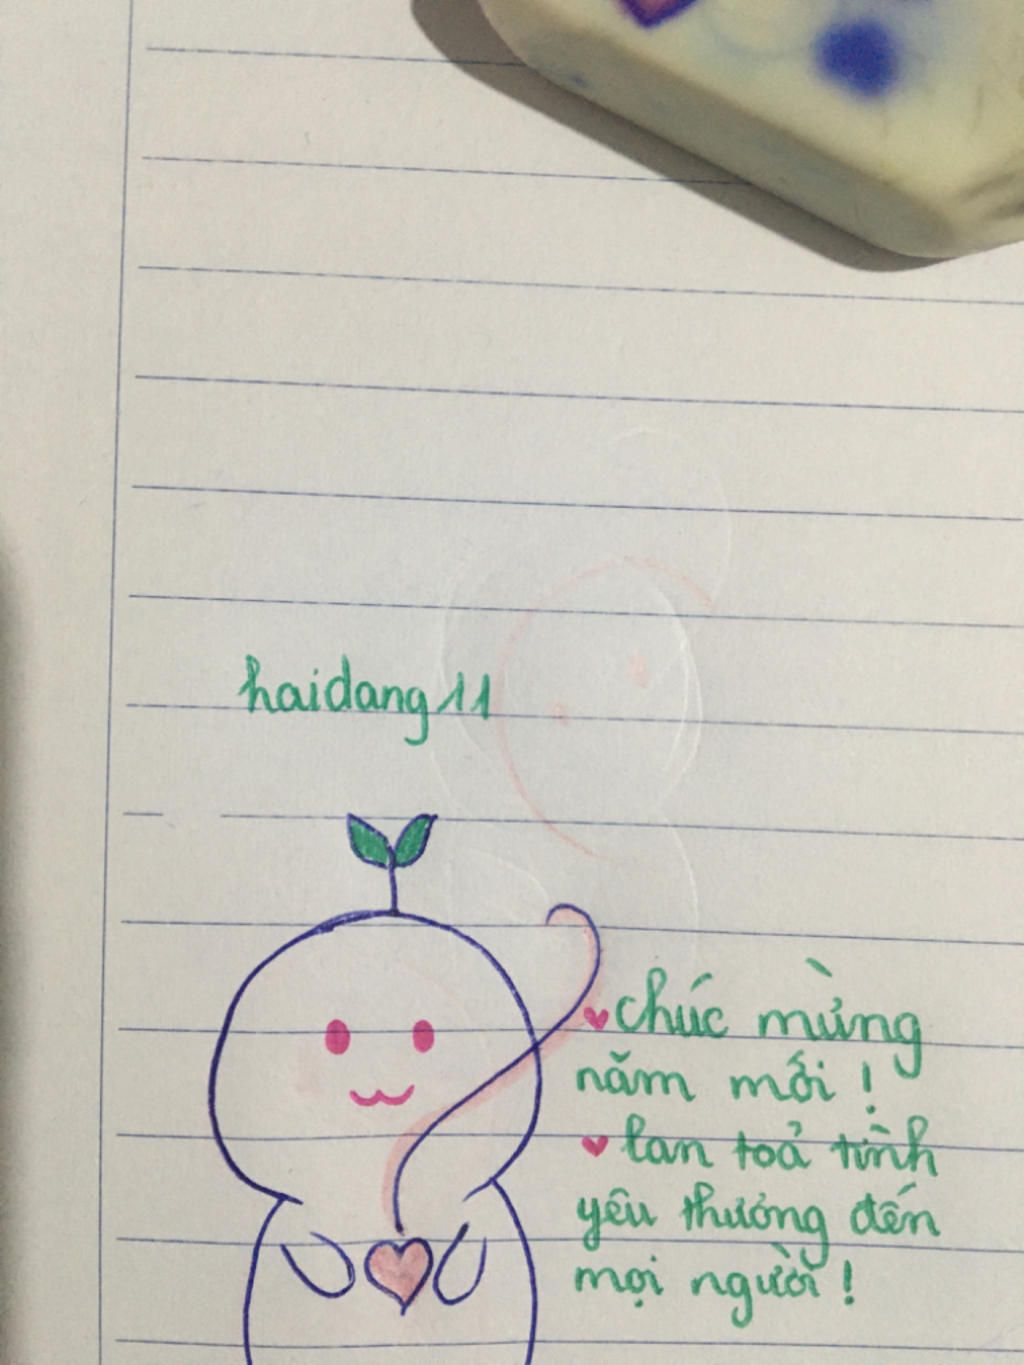 haidang11
chúc mừng
năm mới !
lan toả tình
yêu thương đến
mọi người !